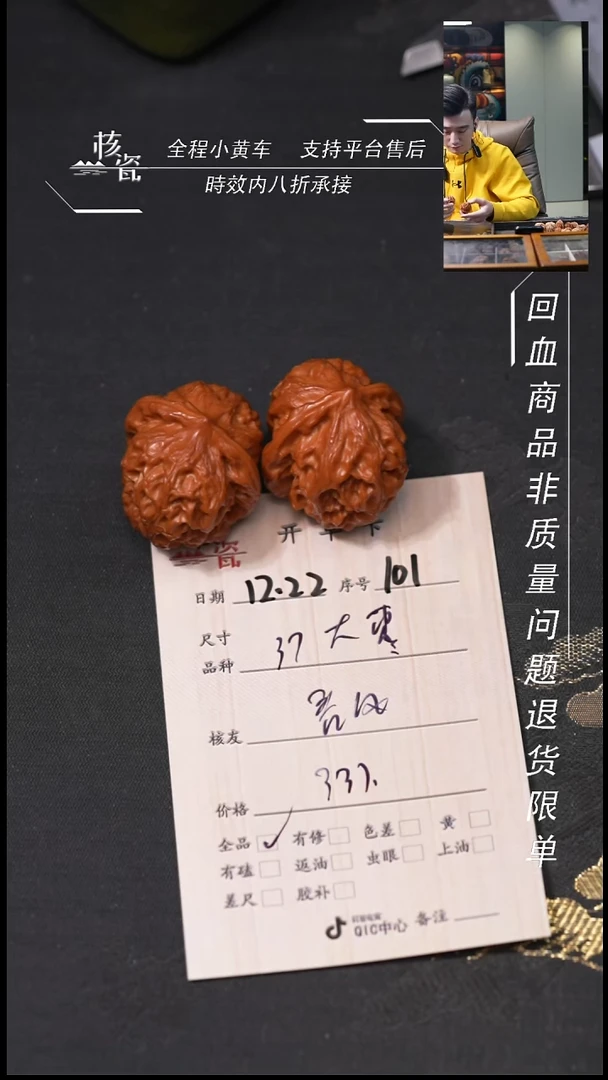 核瓷
全程小黄车 支持平台售后
時效内八折承接
回血商品非质量问题退货限单
瓷
日期 12.22 序号 101
尺寸
品种 37 大枣
核友
价格
全品 ✓ 有修 色差 黄
有磕 返油 虫眼 上油
差尺 胶补
QIC中心 备注